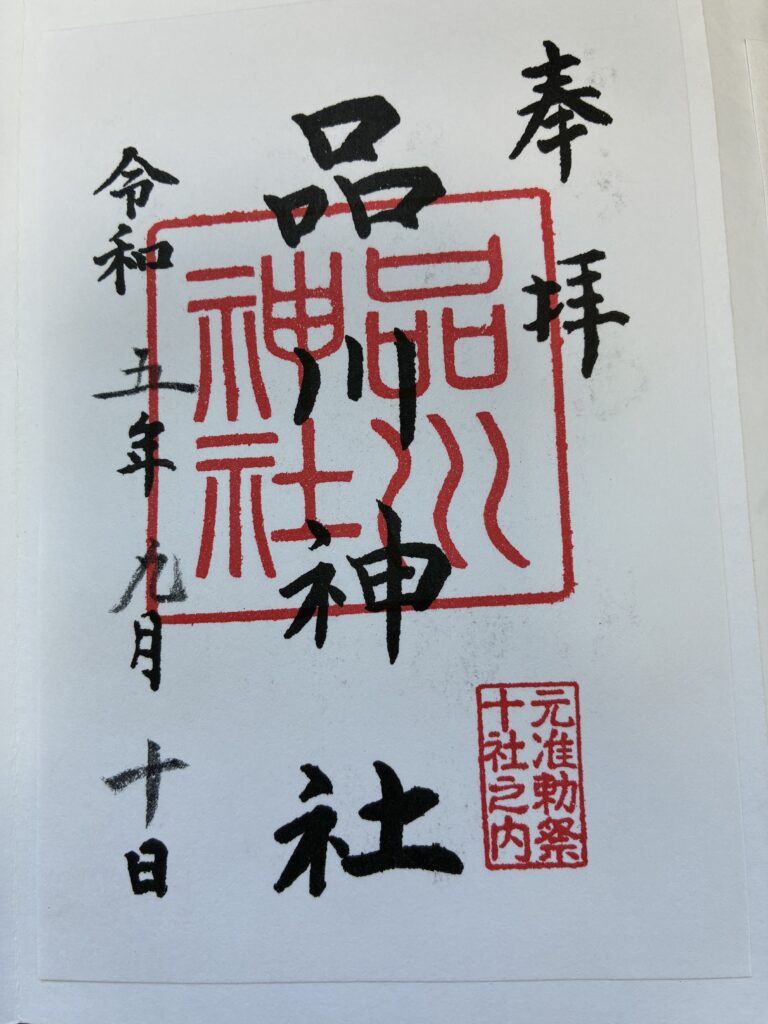 奉拝
品川神社
品川
神社
元准勅祭
十社之内
令和五年九月十日